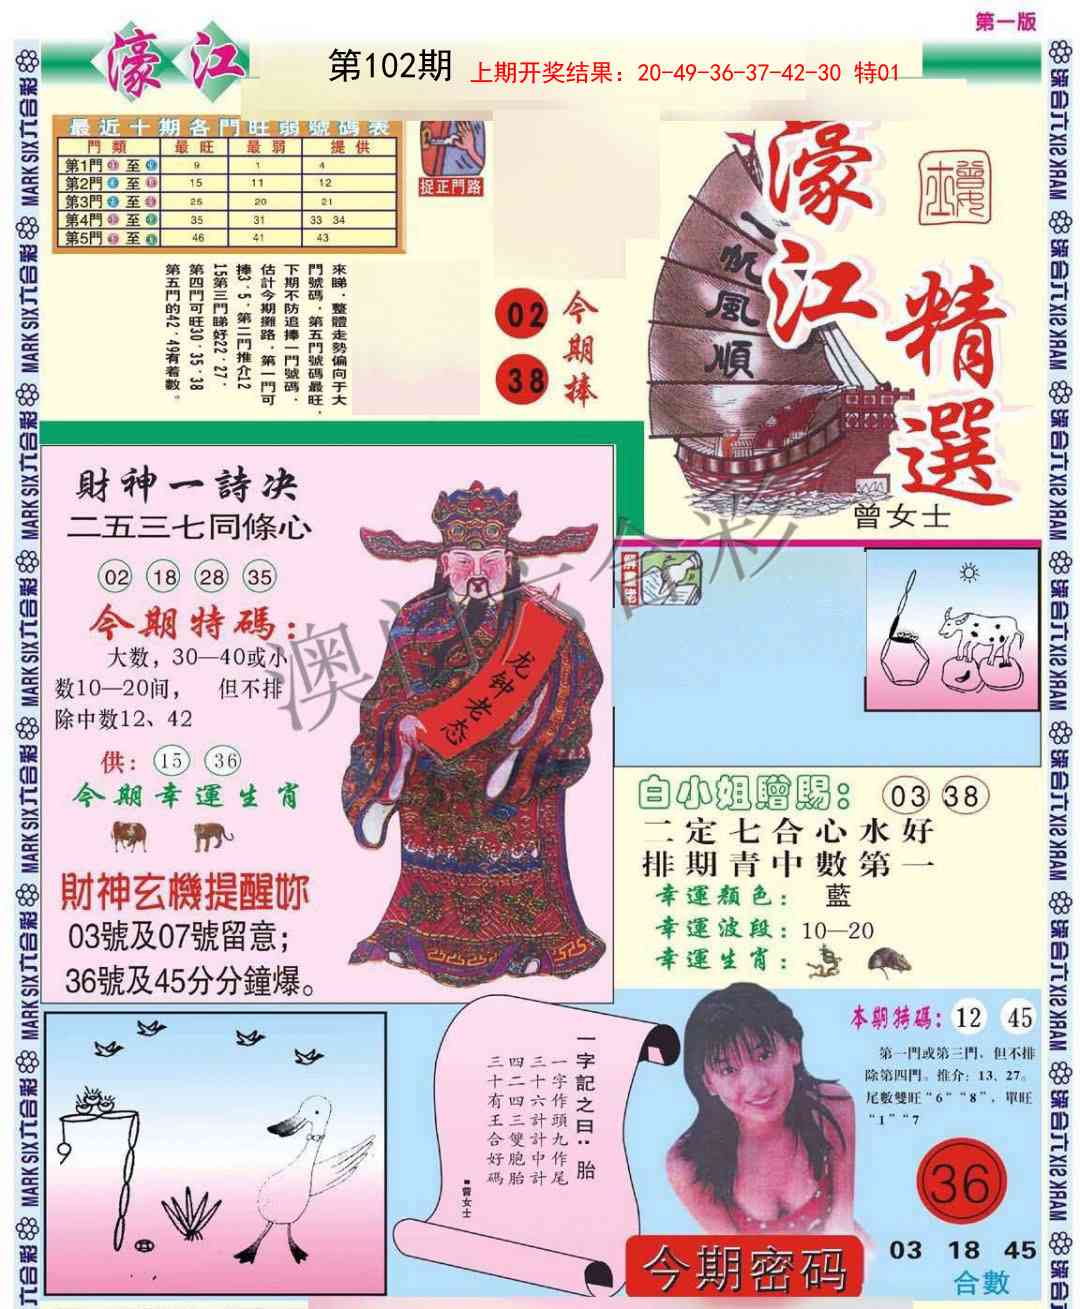 第一版
濠江
第102期
上期开奖结果：20-49-36-37-42-30 特01
最近十期各門旺弱號碼表
門類 最旺 最弱 提供
第1門 至 9 1 4
第2門 至 15 11 12
第3門 至 26 20 21
第4門 至 35 31 33 34
第5門 至 46 41 43
捉正門路
來睇，整體走勢偏向于大
門號碼，第五門號碼最旺，
下期不防追捧一門號碼，
估計今期攤路，第一門可
捧3．5，第二門推介12
15第三門睇好22．27．
第四門可旺30．35．38
第五門的42．49有着數。
今期捧
02
38
一帆風順
濠江
精選
曾女士
財神一詩决
二五三七同條心
02 18 28 35
今期特碼：
大数，30—40或小
数10—20间， 但不排
除中数12、42
供：15 36
今期幸運生肖
財神玄機提醒妳
03號及07號留意；
36號及45分分鐘爆。
龙钟老态
澳门六合彩
白小姐贈賜：03 38
二定七合心水好
排期青中數第一
幸運顏色：藍
幸運波段：10—20
幸運生肖：
一字記之曰：胎
一字作頭九作尾
三十六計計中計
四二四三雙胞胎
三十有王合好碼
■曾女士
本期特碼：12 45
第一門或第三門，但不排
除第四門。推介：13，27。
尾數雙旺“6“ “8”，單旺
“1” “7
36
今期密码
03 18 45
合數
MARK SIX六合彩